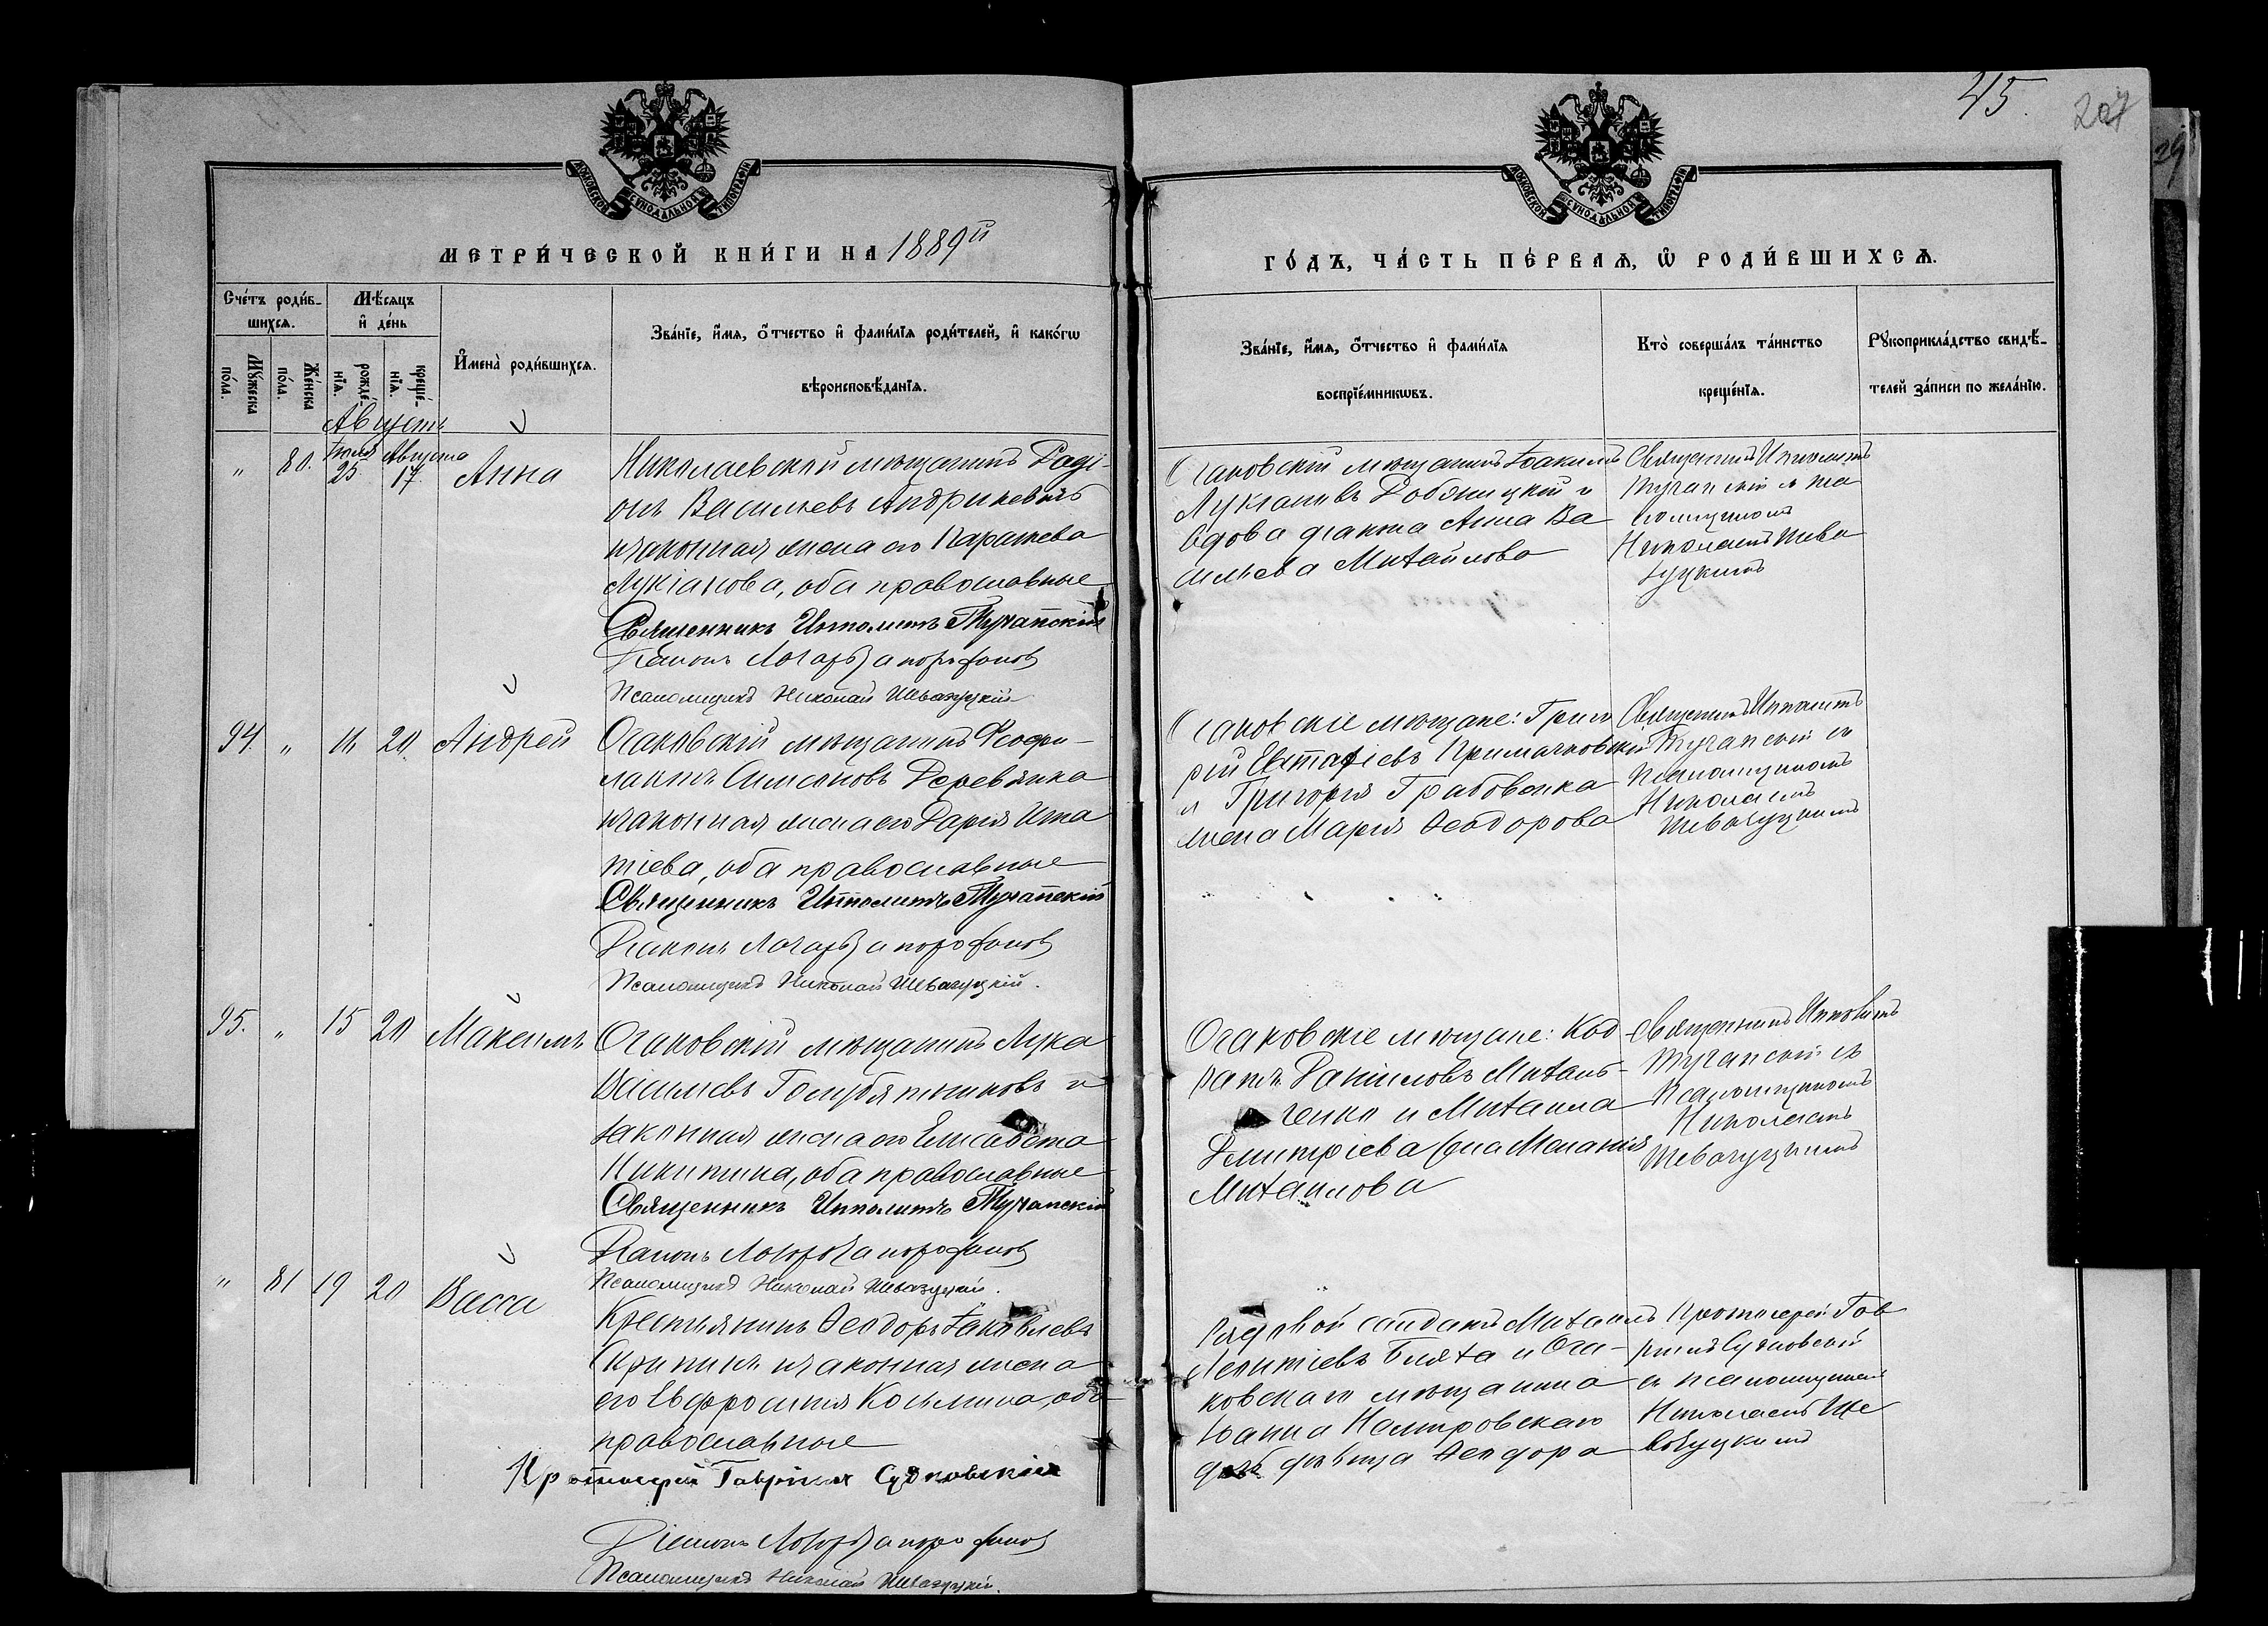 45.
207
29
МОСКОВСКОЙ СѴНОДАЛЬНОЙ ТИПОГРАФІИ
МОСКОВСКОЙ СѴНОДАЛЬНОЙ ТИПОГРАФІИ
МЕТРИ́ЧЕСКОЙ КНИ́ГИ НА 1889й
ГО́ДЪ, ЧА́СТЬ ПЕ́РВАѦ, Ѡ РОДИ́ВШИХСѦ.
Сче́тъ роди́в-
шихсѧ.
Мꙋ́жеска по́ла.
Же́нска по́ла.
Мѣ́сѧцъ
и҆ де́нь
рожде́-нїѧ.
креще́-нїѧ.
И҆мена̀ роди́вшихсѧ.
Зва́нїе, и҆́мѧ, ѻ҆́тчество и҆ фами́лїѧ роди́телей, и҆ како́гѡ
вѣроисповѣ́данїѧ.
Зва́нїе, и҆́мѧ, ѻ҆́тчество и҆ фами́лїѧ
воспрїе́мникѡвъ.
Кто̀ соверша́лъ та́инство
креще́нїѧ.
Рꙋкоприкла́дство свидѣ́-
телей за́писи по жела́нїю.
Августъ
" 80. Іюля 25. Августа 17. Анна
Николаевскій мѣщанинъ Роді-
онъ Васильевъ
и законная жена его Параскева
Лукіанова, оба православные
Священникъ Ипполитъ Тучапскій
Діаконъ
Псаломщикъ Николай Шевазуцкій
Очаковскій мѣщанинъ Іоакимъ
Лукіановъ и
вдова діакона Анна Ва
сильева Михайлова
Священникъ Ипполитъ
Тучапскій съ пса
ломщикомъ
Николаемъ Шева
зуцкимъ
94. " 11. 20. Андрей
Очаковскій мѣщанинъ Ѳеофи-
лактъ Симеоновъ Деревянко
и законная жена его Дарія Игна
тіева, оба православные
Священникъ Ипполитъ Тучапскій
Діаконъ
Псаломщикъ Николай Шевазуцкій.
Очаковскіе мѣщане: Григо
рій Евстафіевъ
и Григорія Грабовенка
жена Марія Ѳеодорова
Священникъ Ипполитъ
Тучапскій съ
Псаломщикомъ
Николаемъ
Шевазуцкимъ
95. " 15 20 Максимъ
Очаковскій мѣщанинъ Лука
Васильевъ Голубятниковъ и
законная жена его Елисавета
Никитина, оба православные
Священникъ Ипполитъ Тучапскій
Діаконъ
Псаломщикъ Николай Шевазуцкій.
Очаковскіе мѣщане: Код-
ратъ Даніиловъ Михаль-
ченко и Михаила
Димитріева жена Меланія
Михаилова
Священникъ Ипполитъ
Тучапскій съ
Псаломщикомъ
Николаемъ
Шевазуцкимъ
" 81 19 20 Васса
Крестьянинъ Ѳеодоръ Іаковлевъ
и законная жена
его Евфросинія Косьмина, оба
православные
Протоіерей Гавріилъ Судковскій
Діаконъ
Псаломщикъ Николай Шевазуцкій.
Рядовой солдатъ Михаилъ
Леонтіевъ и Оча-
ковскаго мѣщанина
Іоанна
дочь дѣвица Ѳеодора
Протоіерей Гав
ріилъ Судковскій
съ псаломщикомъ
Николаемъ Ше
вазуцкимъ